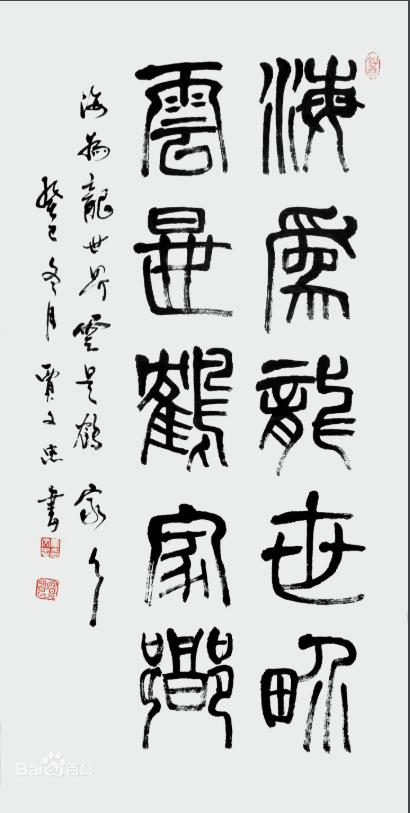 海爲龍世界
雲是鶴家鄉
海为龍世界雲是鶴家乡
癸巳冬月賈文忠書
Baidu百科